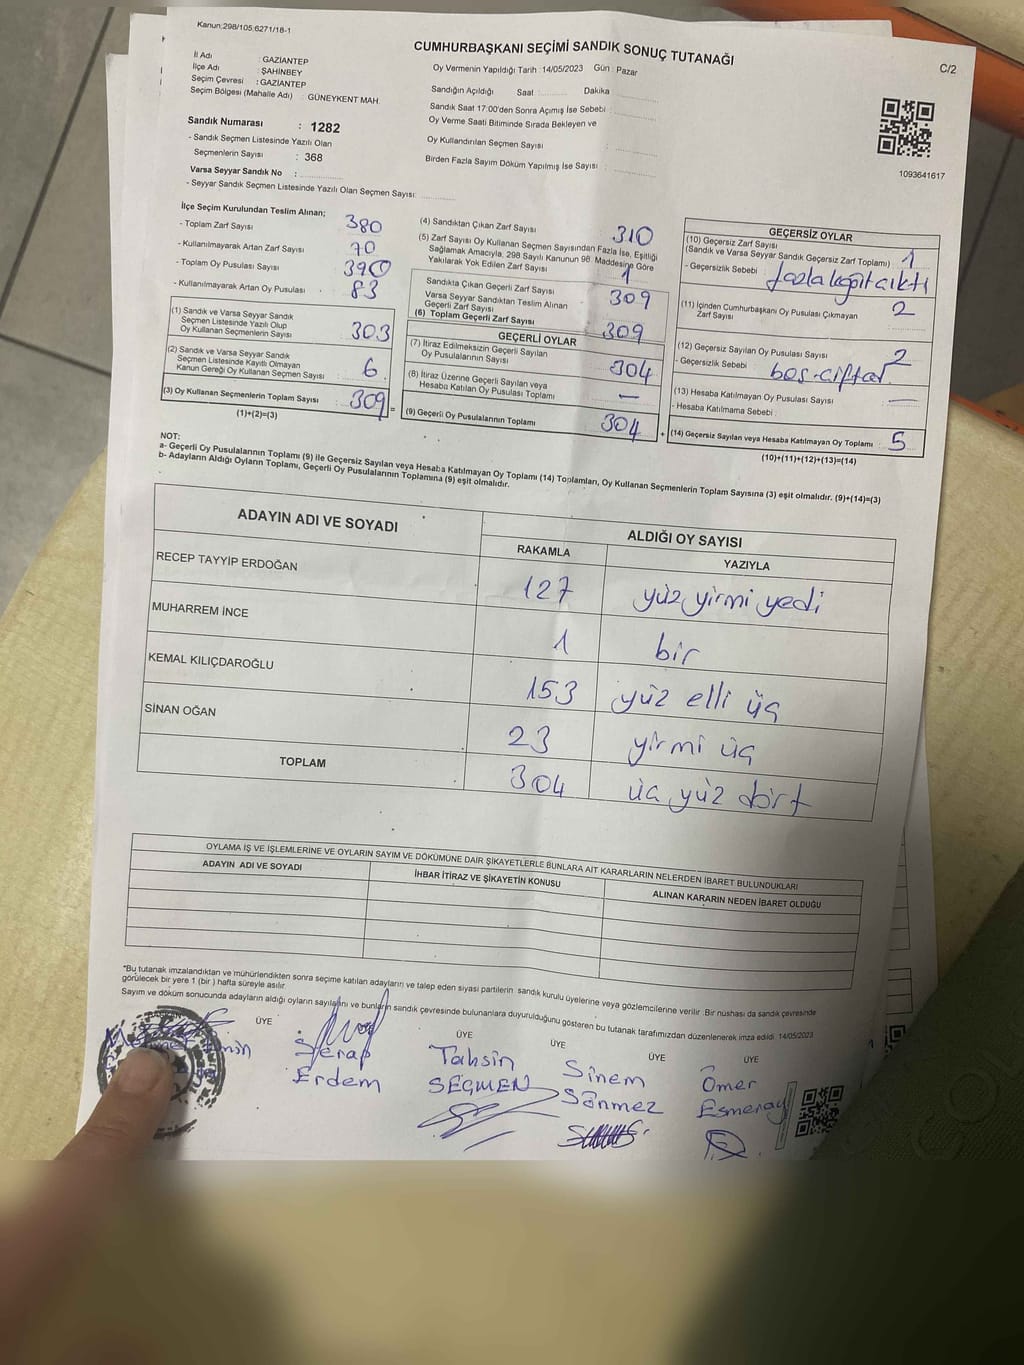 Kanun:298/105;6271/18-1
CUMHURBAŞKANI SEÇİMİ SANDIK SONUÇ TUTANAĞI
C/2
İl Adı : GAZİANTEP
İlçe Adı : ŞAHİNBEY
Seçim Çevresi : GAZİANTEP
Seçim Bölgesi (Mahalle Adı) : GÜNEYKENT MAH.
Sandık Numarası : 1282
- Sandık Seçmen Listesinde Yazılı Olan
Seçmenlerin Sayısı : 368
Varsa Seyyar Sandık No :
- Seyyar Sandık Seçmen Listesinde Yazılı Olan Seçmen Sayısı:
Oy Vermenin Yapıldığı Tarih :14/05/2023 Gün : Pazar
Sandığın Açıldığı Saat : Dakika
Sandık Saat 17:00'den Sonra Açımış İse Sebebi :
Oy Verme Saati Bitiminde Sırada Bekleyen ve
Oy Kullandırılan Seçmen Sayısı :
Birden Fazla Sayım Döküm Yapılmış İse Sayısı :
1093641617
İlçe Seçim Kurulundan Teslim Alınan;
- Toplam Zarf Sayısı : 380
- Kullanılmayarak Artan Zarf Sayısı : 70
- Toplam Oy Pusulası Sayısı : 390
- Kullanılmayarak Artan Oy Pusulası : 83
(1) Sandık ve Varsa Seyyar Sandık
Seçmen Listesinde Yazılı Olup
Oy Kullanan Seçmenlerin Sayısı : 303
(2) Sandık ve Varsa Seyyar Sandık
Seçmen Listesinde Kayıtlı Olmayan
Kanun Gereği Oy Kullanan Seçmen Sayısı : 6
(3) Oy Kullanan Seçmenlerin Toplam Sayısı : 309 =
(1)+(2)=(3)
(4) Sandıktan Çıkan Zarf Sayısı : 310
(5) Zarf Sayısı Oy Kullanan Seçmen Sayısından Fazla İse, Eşitliği
Sağlamak Amacıyla, 298 Sayılı Kanunun 98. Maddesine Göre
Yakılarak Yok Edilen Zarf Sayısı : 1
Sandıkta Çıkan Geçerli Zarf Sayısı : 309
Varsa Seyyar Sandıktan Teslim Alınan
Geçerli Zarf Sayısı
(6) Toplam Geçerli Zarf Sayısı : 309
GEÇERLİ OYLAR
(7) İtiraz Edilmeksizin Geçerli Sayılan
Oy Pusulalarının Sayısı : 304
(8) İtiraz Üzerine Geçerli Sayılan veya
Hesaba Katılan Oy Pusulası Toplamı : —
(9) Geçerli Oy Pusulalarının Toplamı : 304 +
GEÇERSİZ OYLAR
(10) Geçersiz Zarf Sayısı
(Sandık ve Varsa Seyyar Sandık Geçersiz Zarf Toplamı) : 1
- Geçersizlik Sebebi : fazla kağıt çıktı
(11) İçinden Cumhurbaşkanı Oy Pusulası Çıkmayan
Zarf Sayısı : 2
(12) Geçersiz Sayılan Oy Pusulası Sayısı : 2
- Geçersizlik Sebebi : boş-çiftar
(13) Hesaba Katılmayan Oy Pusulası Sayısı : —
- Hesaba Katılmama Sebebi :
(14) Geçersiz Sayılan veya Hesaba Katılmayan Oy Toplamı : 5
(10)+(11)+(12)+(13)=(14)
NOT:
a- Geçerli Oy Pusulalarının Toplamı (9) ile Geçersiz Sayılan veya Hesaba Katılmayan Oy Toplamı (14) Toplamları, Oy Kullanan Seçmenlerin Toplam Sayısına (3) eşit olmalıdır. (9)+(14)=(3)
b- Adayların Aldığı Oyların Toplamı, Geçerli Oy Pusulalarının Toplamına (9) eşit olmalıdır.
ADAYIN ADI VE SOYADI
ALDIĞI OY SAYISI
RAKAMLA YAZIYLA
RECEP TAYYİP ERDOĞAN 127 yüz yirmi yedi
MUHARREM İNCE 1 bir
KEMAL KILIÇDAROĞLU 153 yüz elli üç
SİNAN OĞAN 23 yirmi üç
TOPLAM 304 üç yüz dört
OYLAMA İŞ VE İŞLEMLERİNE VE OYLARIN SAYIM VE DÖKÜMÜNE DAİR ŞİKAYETLERLE BUNLARA AİT KARARLARIN NELERDEN İBARET BULUNDUKLARI
ADAYIN ADI VE SOYADI
İHBAR İTİRAZ VE ŞİKAYETİN KONUSU
ALINAN KARARIN NEDEN İBARET OLDUĞU
*Bu tutanak imzalandıktan ve mühürlendikten sonra seçime katılan adayların ve talep eden siyasi partilerin sandık kurulu üyelerine veya gözlemcilerine verilir .Bir nüshası da sandık çevresinde
görülecek bir yere 1 (bir ) hafta süreyle asılır.
Sayım ve döküm sonucunda adayların aldığı oyların sayılarını ve bunların sandık çevresinde bulunanlara duyurulduğunu gösteren bu tutanak tarafımızdan düzenlenerek imza edildi. 14/05/2023
ÜYE ÜYE ÜYE ÜYE ÜYE
Serap Erdem
Tahsin SEÇMEN
Sinem Sönmez
Ömer Esmeray